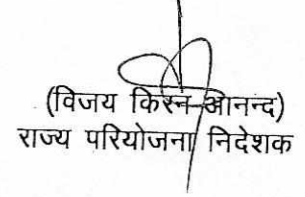 (विजय किरन आनन्द)
राज्य परियोजना निदेशक